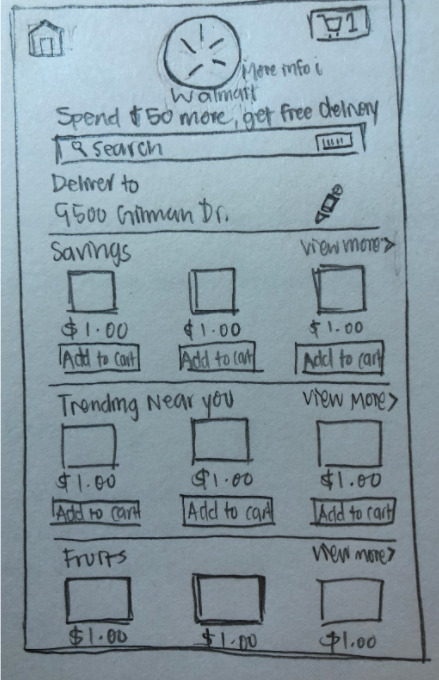 1
More info i
Walmart
Spend $50 more, get free delivery
Search
Deliver to
9500 Gilman Dr.
Savings
View more >
$1.00 $1.00 $1.00
Add to cart Add to cart Add to cart
Trending Near you
View More >
$1.00 $1.00 $1.00
Add to cart Add to cart Add to cart
Fruits
View more >
$1.00 $1.00 $1.00